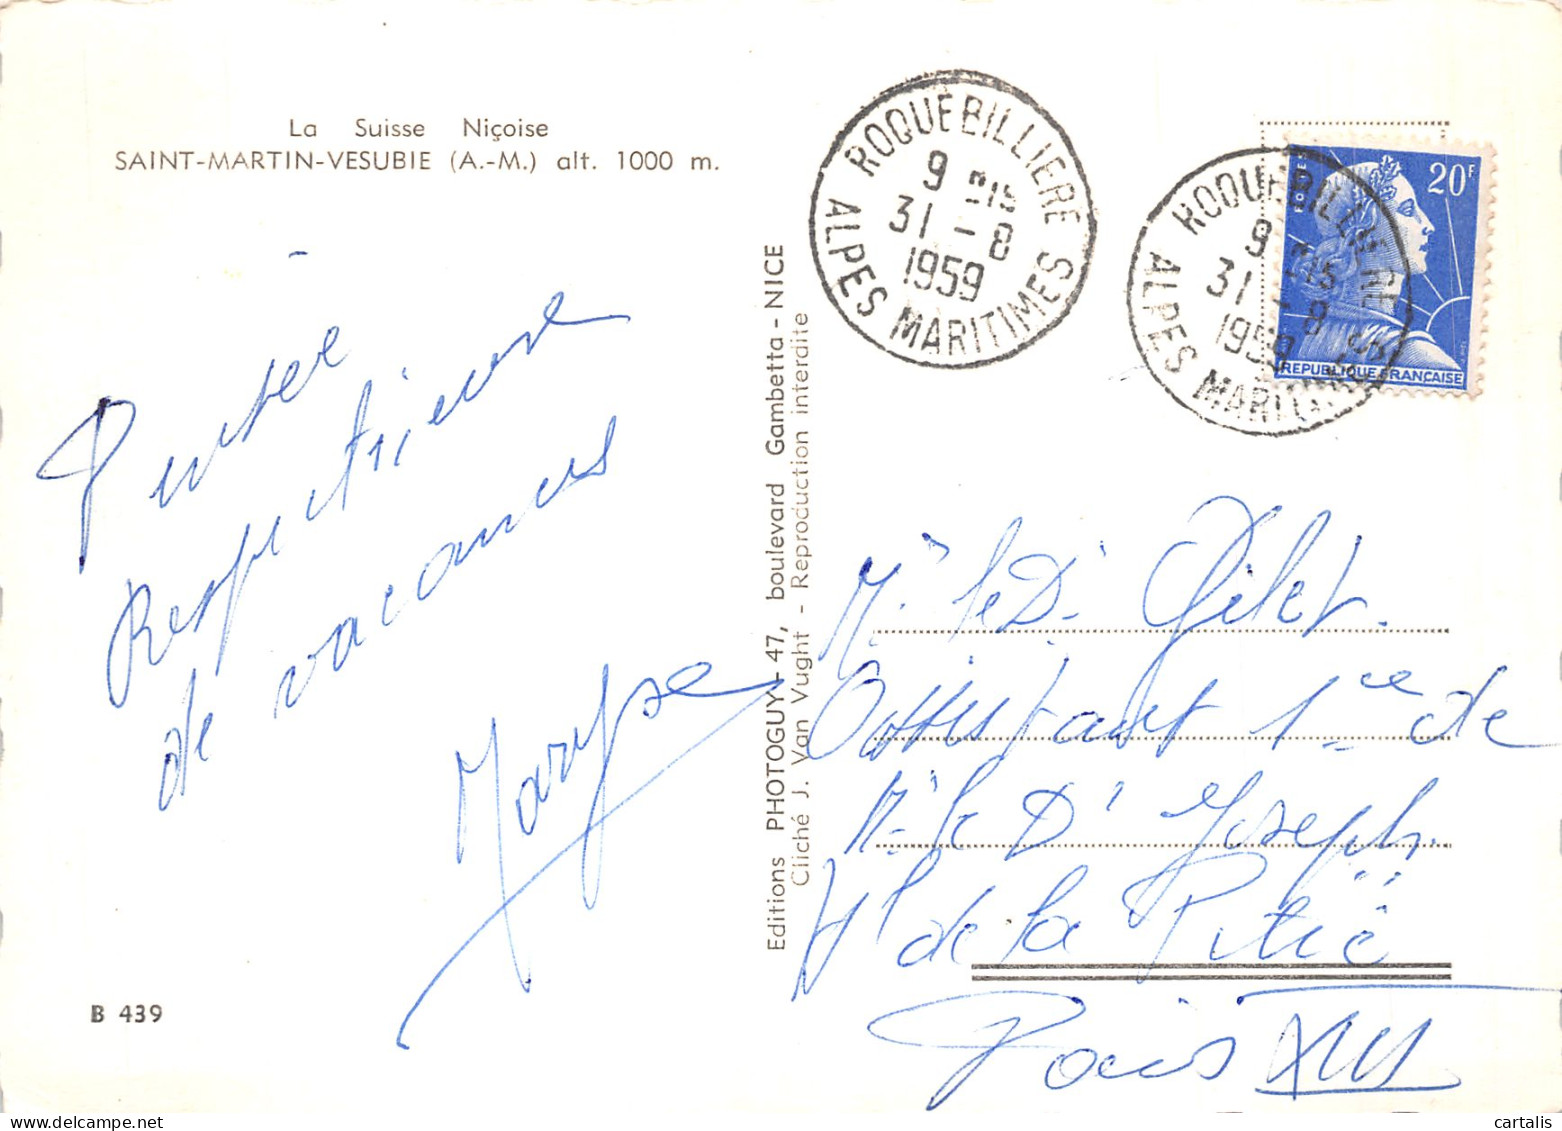 La Suisse Niçoise
SAINT-MARTIN-VESUBIE (A.-M.) alt. 1000 m.
Pensée
Respectueuse
de vacances
Maryse
B 439
Editions PHOTOGUY - 47, boulevard Gambetta - NICE
Cliché J. Van Vught - Reproduction interdite
ROQUEBILLIERE
9 H15
31 - 8
1959
ALPES MARITIMES
ROQUEBILLIERE
9 H15
31 - 8
1959
ALPES MARITIMES
POSTES
20F
REPUBLIQUE FRANCAISE
Mr le Dr Gilet.
Assistant 1ce de
Mr le Dr Joseph.
Hl de la Pitié
Paris XIII
cartalis